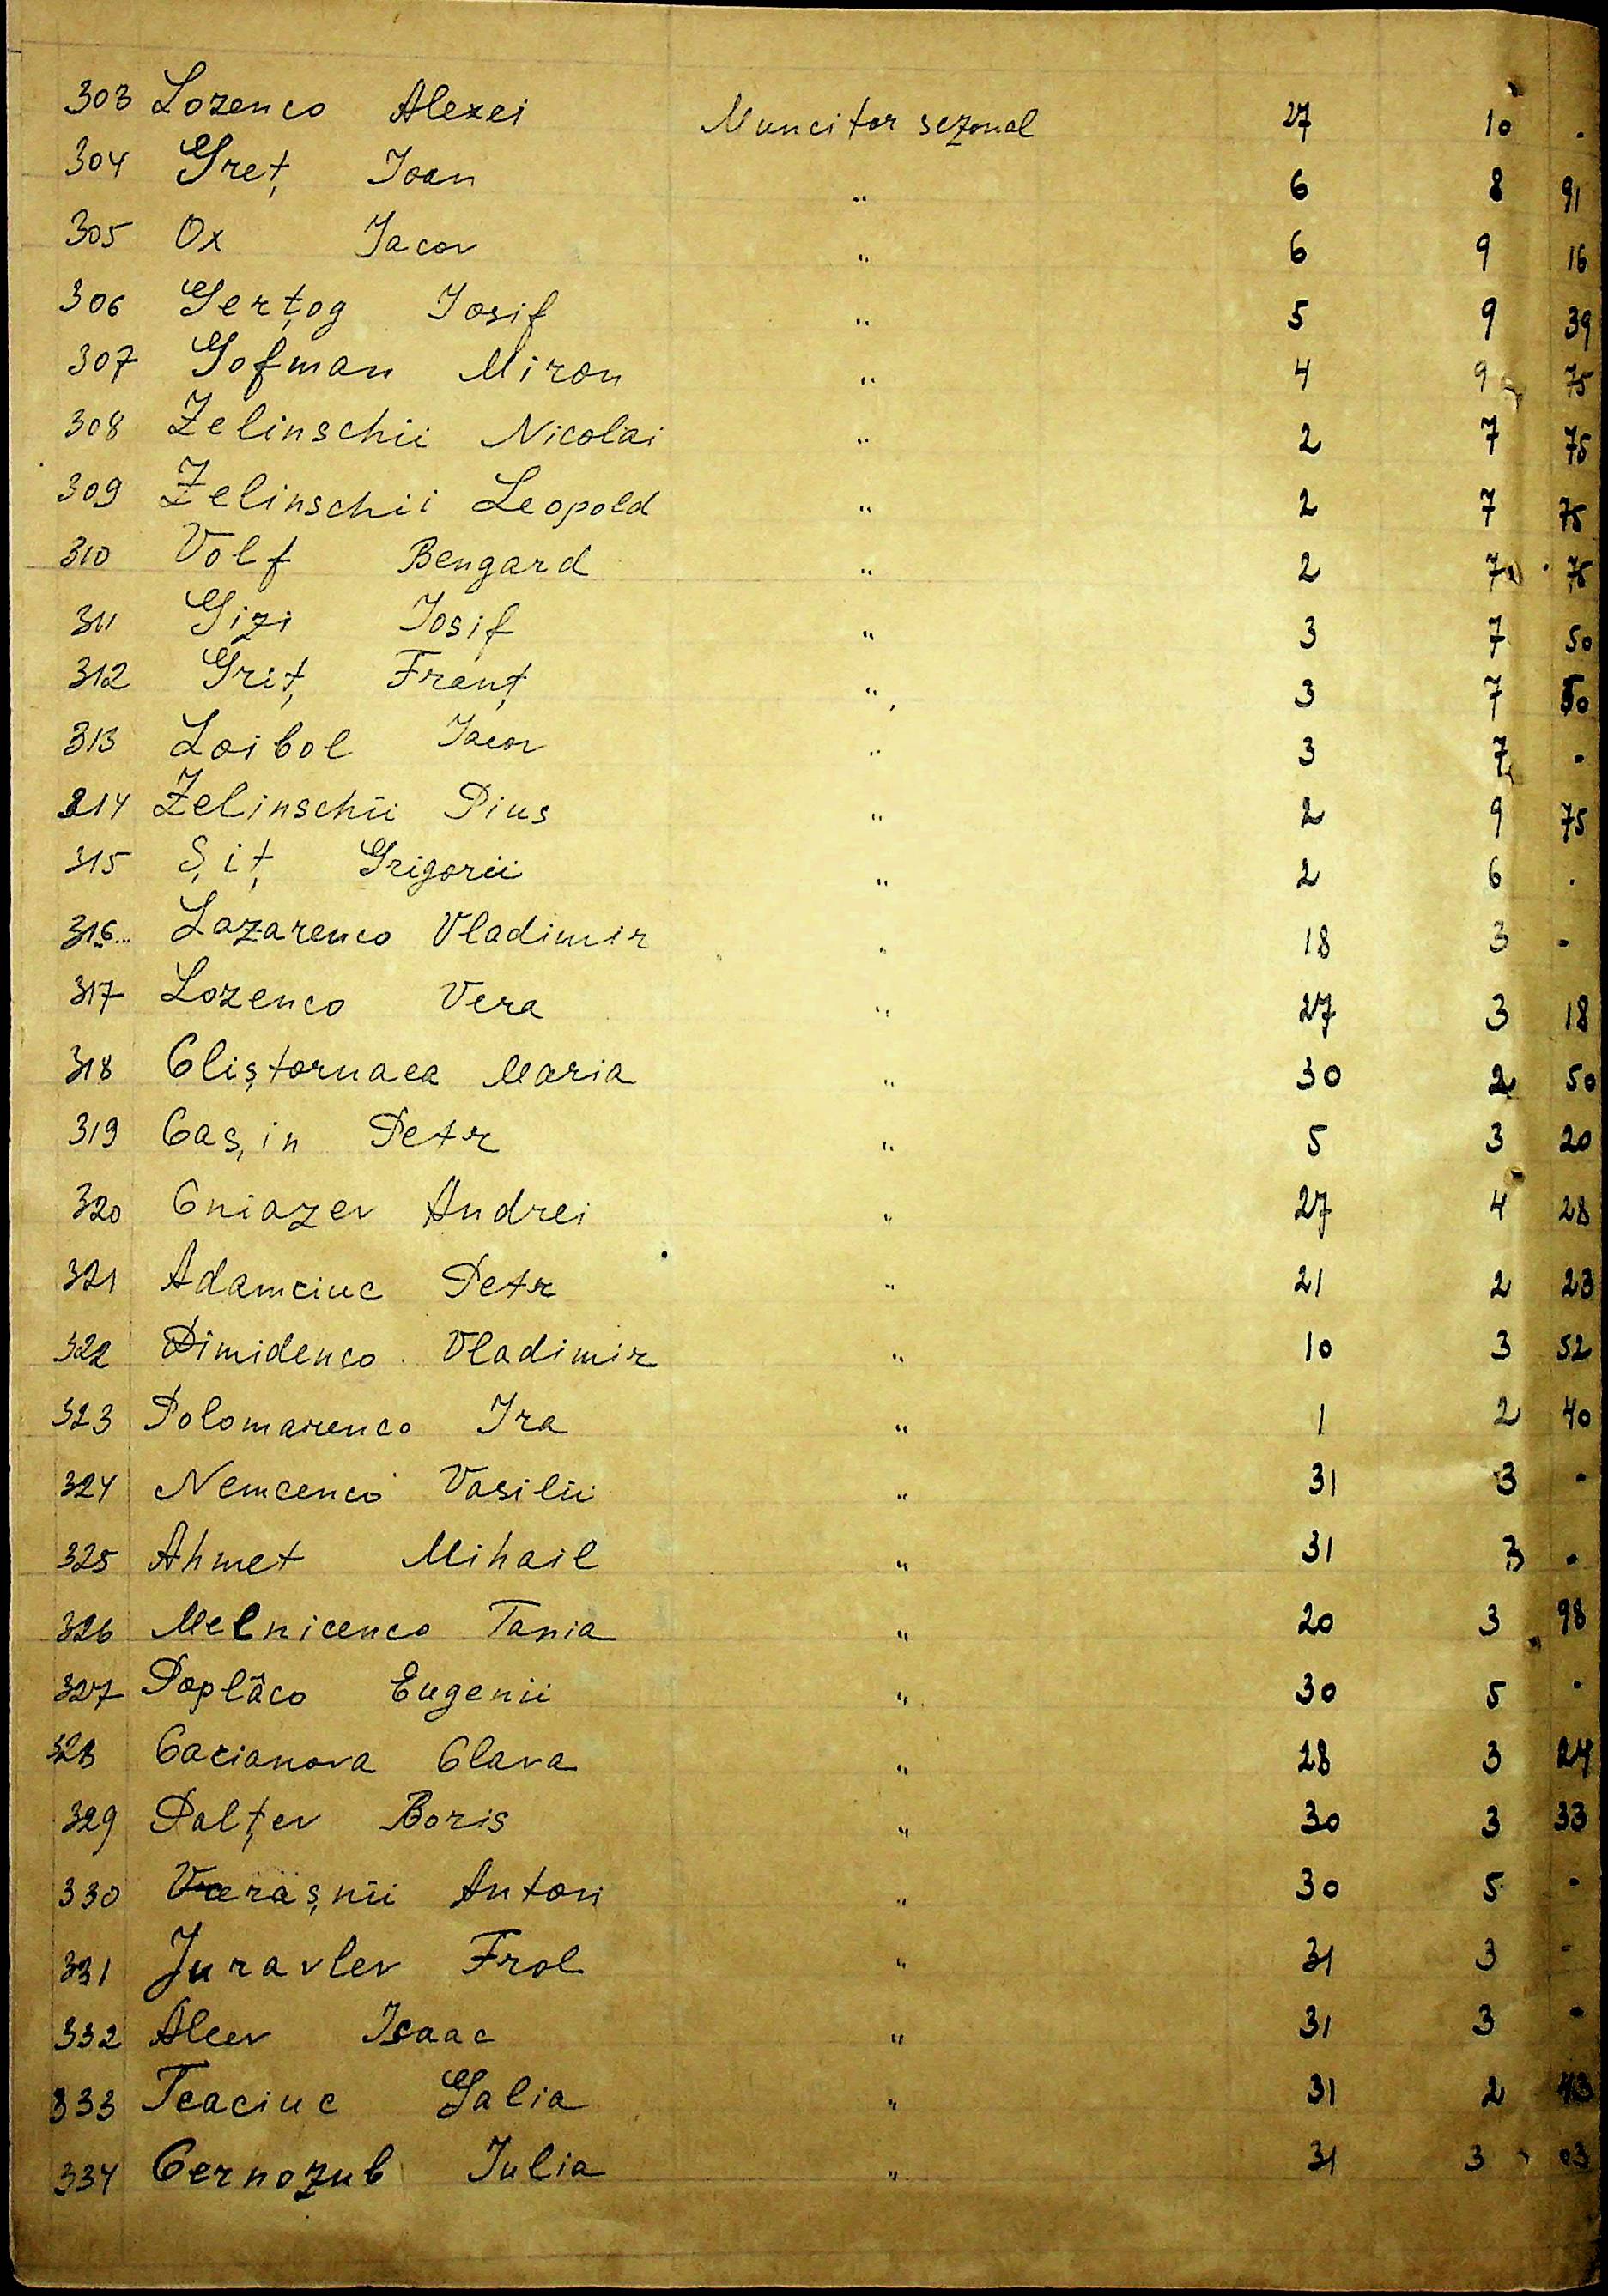 303 Lozenco Alexei Muncitor sezonal 27 10 .
304 Greț Ioan " 6 8 91
305 Ox Iacov " 6 9 16
306 Gerțog Iosif " 5 9 39
307 Gofman Miron " 4 9 75
308 Zelinschii Nicolai " 2 7 75
309 Zelinschii Leopold " 2 7 75
310 Volf Bengard " 2 7 75
311 Gizi Iosif " 3 7 50
312 Griț Franț " 3 7 50
313 Loibol Iacov " 3 7 -
314 Zelinschii Pius " 2 9 75
315 Șiț Grigorii " 2 6 .
316 Lazarenco Vladimir " 18 3 -
317 Lozenco Vera " 27 3 18
318 Cliștornaea Maria " 30 2 50
319 Cașin Petr " 5 3 20
320 Cniazev Andrei " 27 4 28
321 Adamciuc Petr " 21 2 23
322 Dimidenco Vladimir " 10 3 52
323 Polomarenco Ira " 1 2 40
324 Nemcenco Vasilii " 31 3 -
325 Ahmet Mihail " 31 3 -
326 Melnicenco Tania " 20 3 98
327 Poplâco Eugenii " 30 5 -
328 Cacianova Clava " 28 3 24
329 Palțev Boris " 30 3 33
330 Anton " 30 5 -
331 Juravlev Frol " 31 3 -
332 Alcev Isaac " 31 3 -
333 Tcaciuc Galia " 31 2 43
334 Cernozub Iulia " 31 3 03